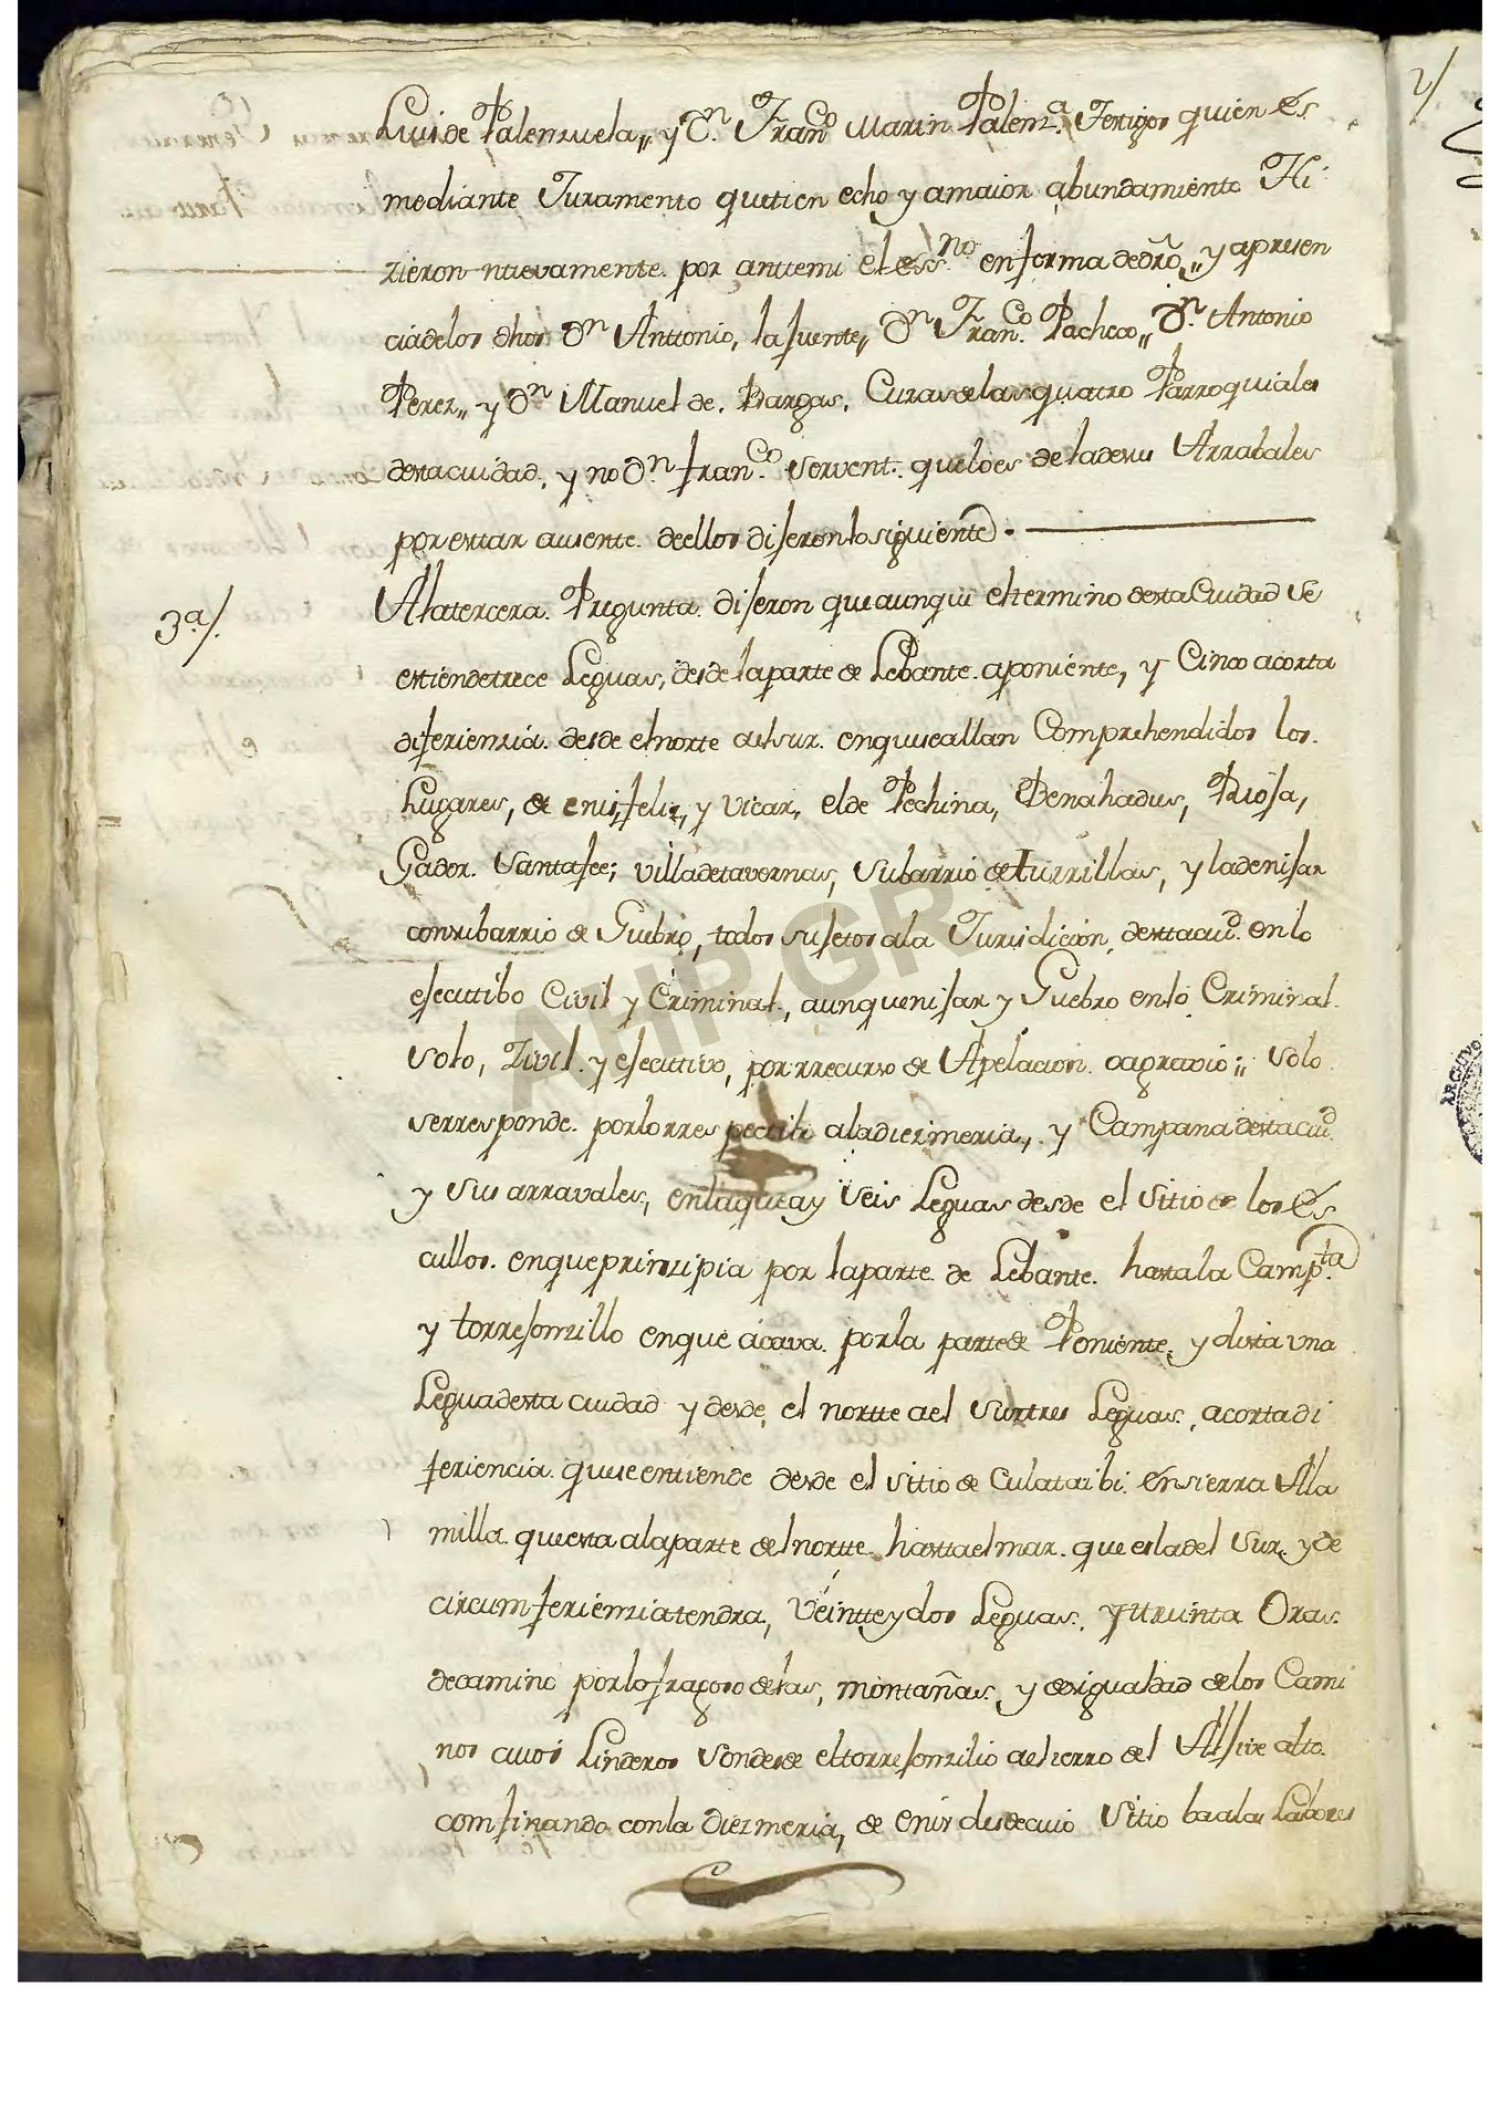 Luis de Palenzuela,, y Dn. Franco Marin Palenza. Testigos quien és
mediante Juramento quetien echo y amaior abundamiento Hi
zieron nuevamente. por anttemi el essno. enforma dedro,, y apresen
ciadelos dhos Dn Anttonio, lafuente,, Dn Franco. Pacheco,, Dn. Antonio
Perez,, y Dn Manuel de. Bargas. Curas delas quatro Parroquiales
destaciudad, y no Dn franco. servent. queloes de ladesus Arrabales
por estar ausente. deellos diferonlosiguiente.
3a/. Alatercera. Pregunta. diferon que aunque eltermino desta Ciudad se
estiendetrece Leguas, desde laparte de Lebante. aponiente, y Cinco acorta
diferienzia. desde elnorte aelsur. enquese allan Comprehendidos los.
Lugares, de enis, felix, y vicar, elde Pechina, Benahadus, Rioja,
Gador. Santafee; villadetavernas, subarrio deturrillas, y ladenifar
consubarrio de Guebro, todos sujetos ala Jurisdicion, destaciud. en lo
efecuttibo Civil y Criminal, aunquenifar y Guebro enlo Criminal.
solo, Zivil. y efecuttivo, porrrecurso de Apelacion. oagravio;, solo
serresponde. porlorrespectibo aladiezmeria,. y Campana destaciud.
y sus arravales, enlaqueay seis Leguas desde el sitio de los és
cullos. enqueprinzipia por laparte de Lebante. hasta la Campta.
y torrefonzillo enque acava. porla parte de Poniente, y dista una
Leguadesta ciudad y desde, el nortte ael surtres Leguas, acorta di
feriencia. quese entiende desde el sitio de Culataibi. ensierra Alla
milla. queesta alaparte delnortte. hasttaelmar. que esladel sur, y de
circumferienziatendra, Veintteydos Leguas, y ttreinta Oras.
decamino porlofragoso delas, montañas, y desigualdad delos Cami
nos cuios Linderos sondesde eltorrefonzilio aelzerro del Alfive alto.
comfinando conla diezmeria, de enix desdecuio sitio baalas Labores
2/
ARCHIVO
AHP GR